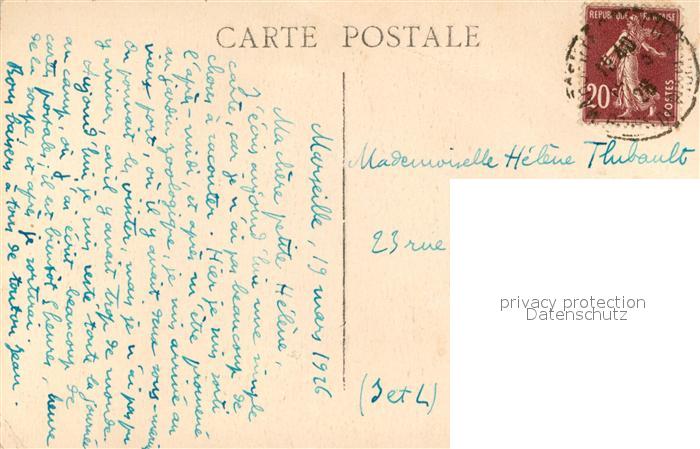 CARTE POSTALE
REPUBLIQUE FRANÇAISE
20c
POSTES
Marseille, 19 mars 1926
Ma chère petite Hélène,
J'écris aujourd'hui une simple
carte, car je n'ai pas beaucoup de
choses à raconter. Hier je suis sorti
l'après-midi, et après m'être promené
au jardin zoologique, je suis arrivé au
vieux port, où il y avait deux sous-marins
On pouvait les visiter, mais je n'ai pas pu
y arriver, car il y avait trop de monde.
Aujourd'hui je suis resté toute la journée
au camp, où j'ai écrit beaucoup de
cartes postales; il est bientôt 5 heures, heure
de la soupe, et après je sortirai.
Bons baisers à tous de tonton Jean.
Mademoiselle Hélène Thibault
23 rue
(S et L)
privacy protection
Datenschutz